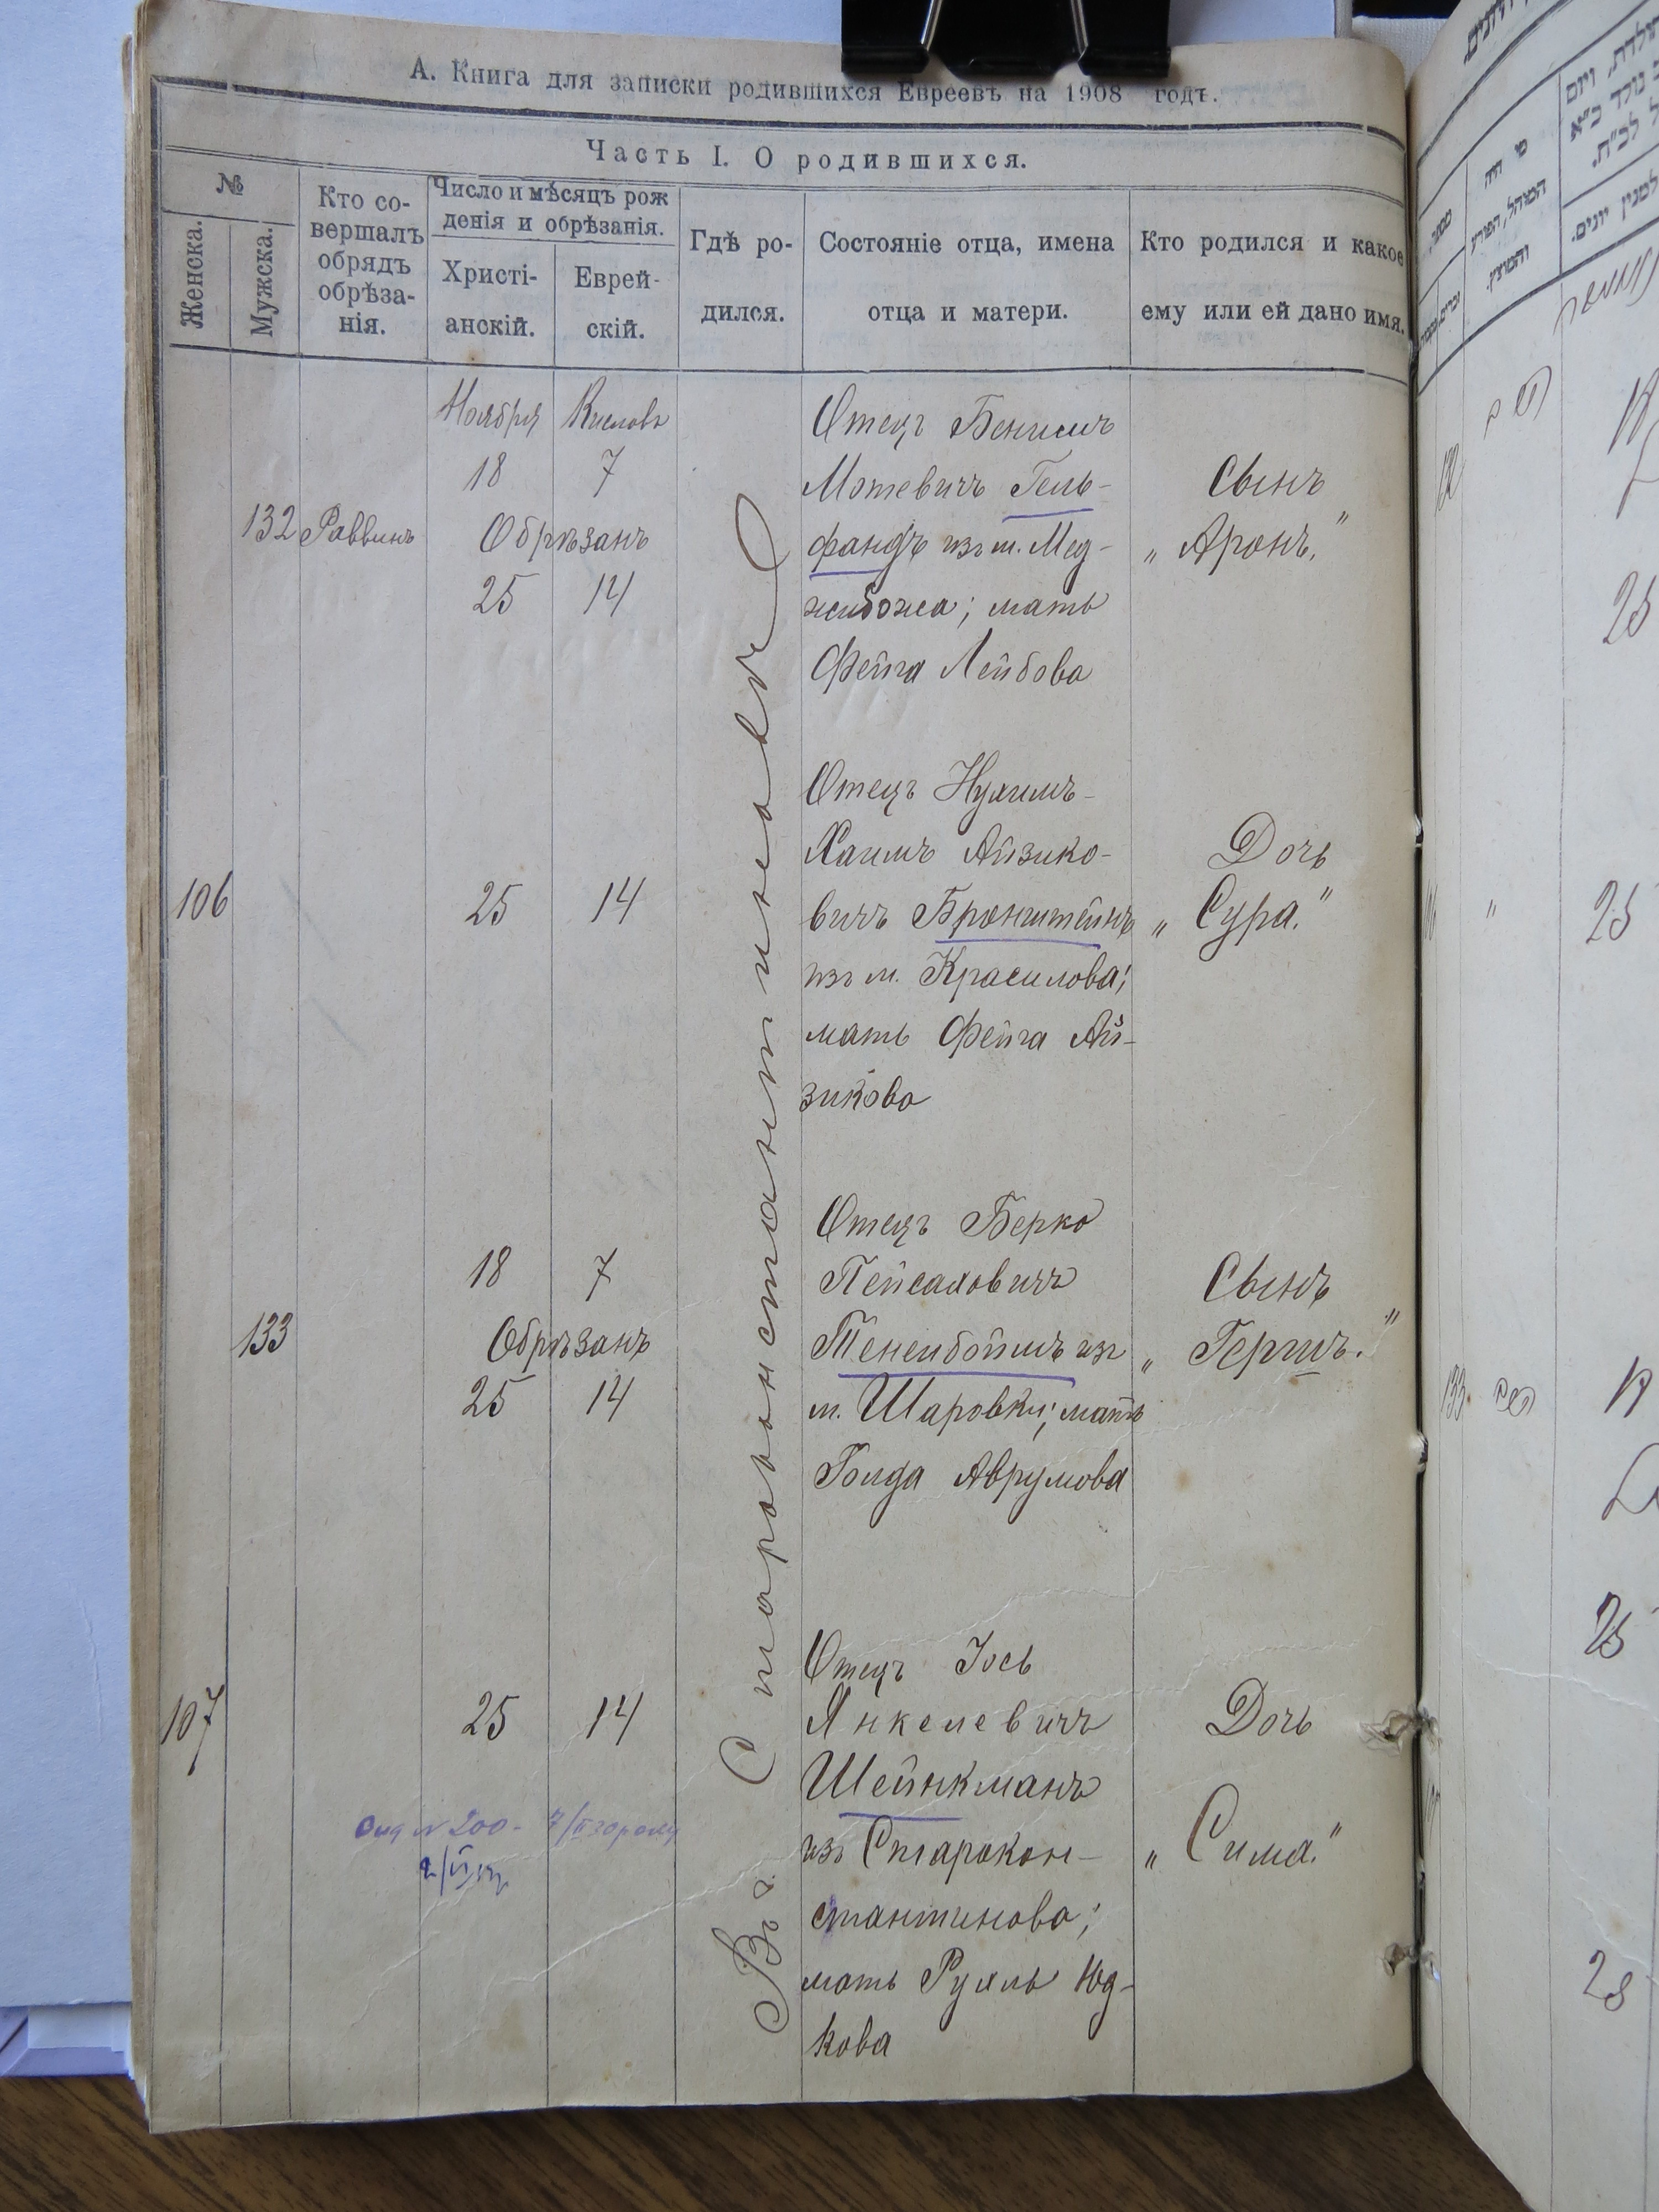 А. Книга для записки родившихся Евреевъ на 1908 годъ.
Часть I. О родившихся.
№
Женска.
Мужска.
Кто со-
вершалъ
обрядъ
обрѣза-
нія.
Число и мѣсяцъ рож
денія и обрѣзанія.
Христі-
анскій.
Еврей-
скій.
Гдѣ ро-
дился.
Состояніе отца, имена
отца и матери.
Кто родился и какое
ему или ей дано имя.
Въ г. Староконстантиновѣ
132 Раввинъ
Ноября Кислова
18 7
Обрѣзанъ
25 14
Отецъ Бенишъ
Мотевичъ Гель-
фандъ изъ м. Мед-
жибожа; мать
Фейга Лейбова
Сынъ
„Аронъ."
106
25 14
Отецъ Нухимъ-
Хаимъ Айзико-
вичъ Бронштейнъ
изъ м. Красилова;
мать Фейга Ай-
зикова
Дочь
„Сура."
133
18 7
Обрѣзанъ
25 14
Отецъ Берко
Пейсаховичъ
Тененбоймъ изъ
м. Шаровки; мать
Голда Аврумова
Сынъ
„Гершъ."
107
25 14
Отецъ Іось
Янкелевичъ
Шейнкманъ
изъ Старокон-
стантинова;
мать Рухль Юд-
кова
Дочь
„Сима."
№ 200-
132
25
25
133
25
28